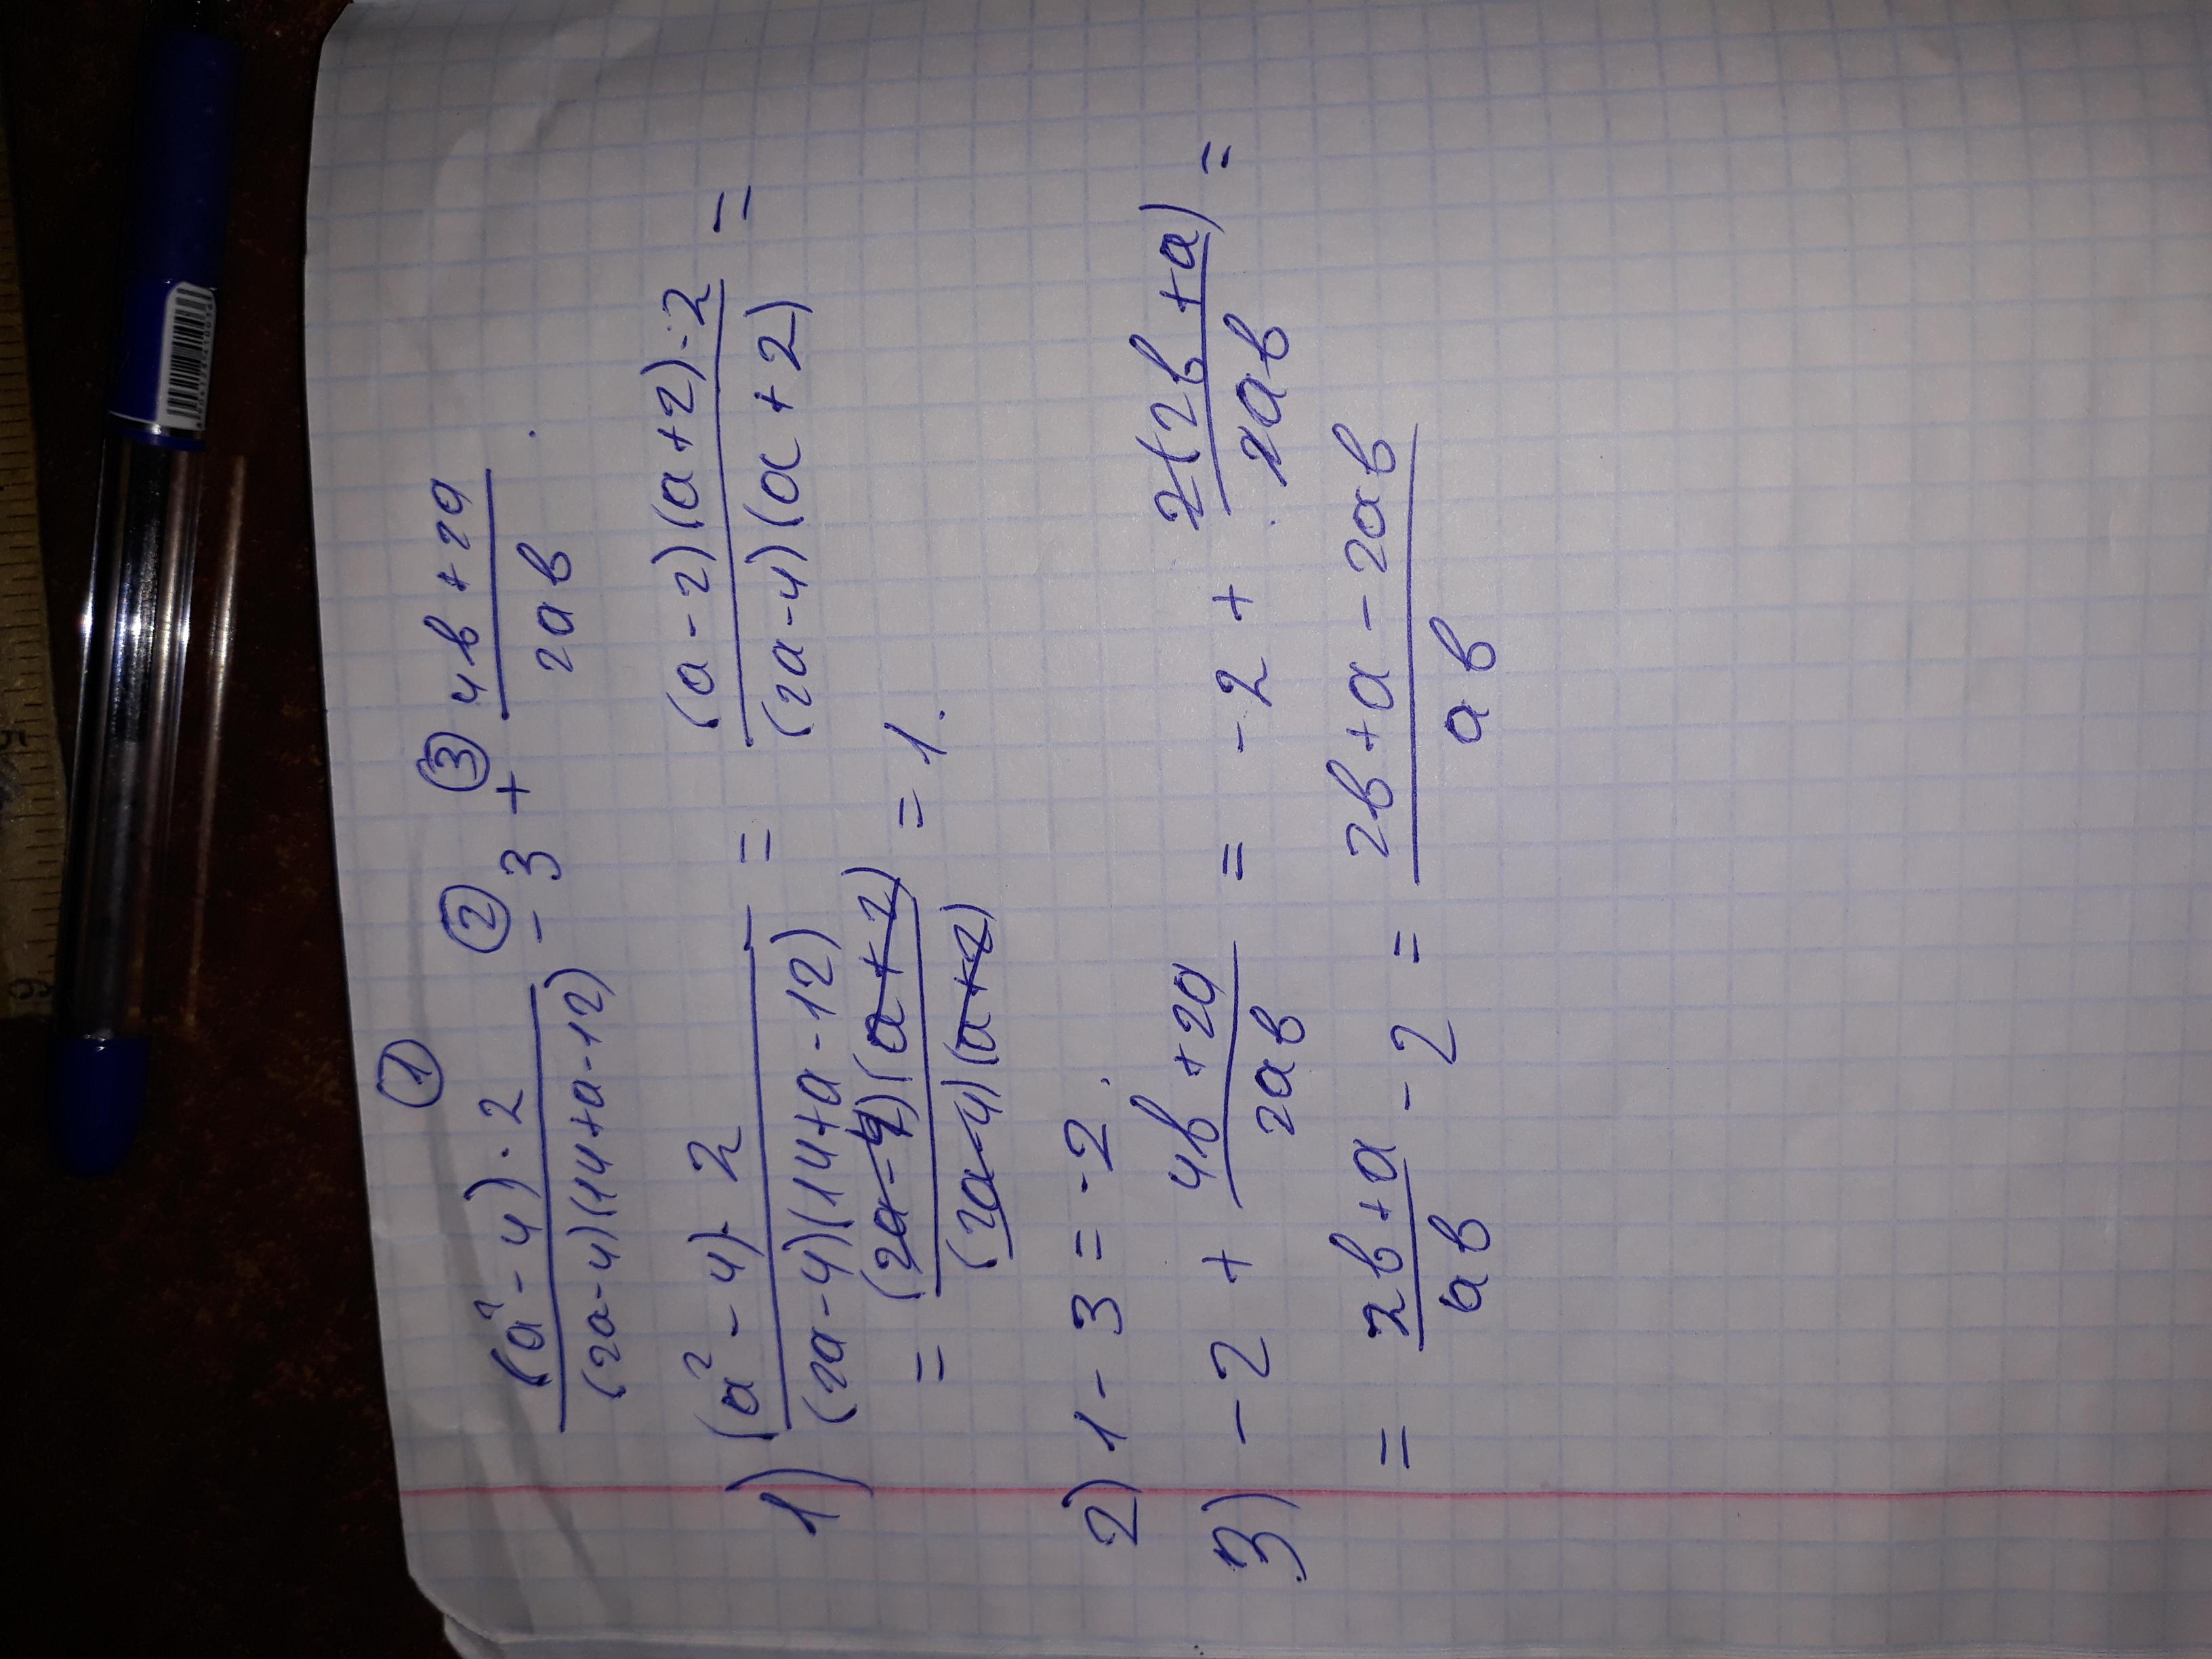 ① ② ③
(a² - 4) · 2 / (2a - 4)(14 + a - 12) - 3 + 4в + 2a / 2aв
1) (a² - 4) · 2 / (2a - 4)(14 + a - 12) = (a - 2)(a + 2) · 2 / (2a - 4)(a + 2) =
= (2a - 4)(a + 2) / (2a - 4)(a + 2) = 1.
2) 1 - 3 = -2.
3) -2 + 4в + 2a / 2aв = -2 + 2(2в + a) / 2aв =
= 2в + a / aв - 2 = 2в + a - 2aв / aв